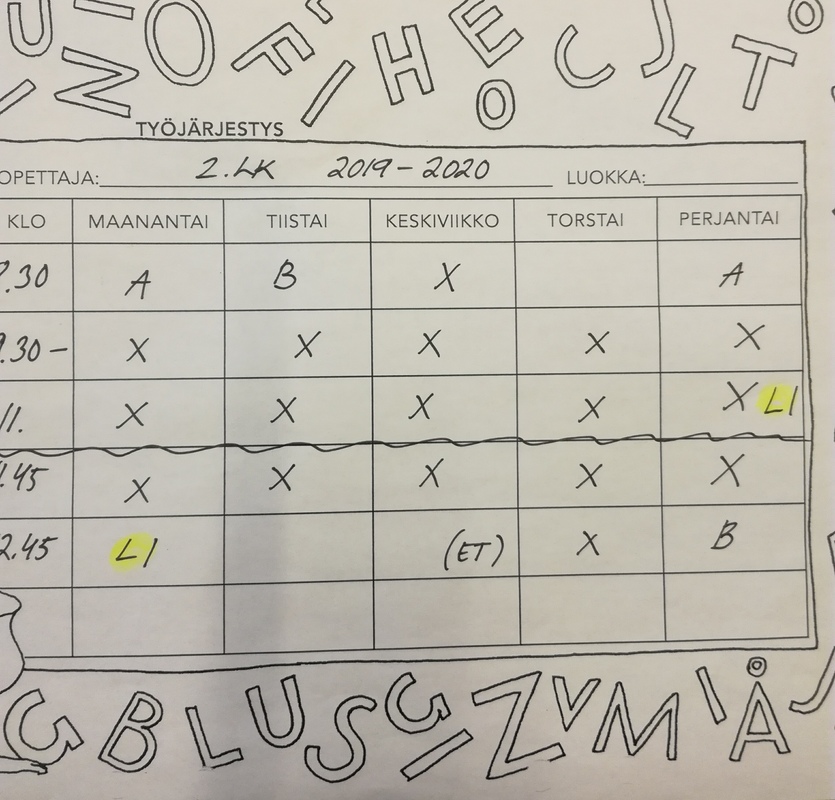 U I O F I H E O C J L T O
N
TYÖJÄRJESTYS
OPETTAJA: 2.LK 2019-2020 LUOKKA:
KLO MAANANTAI TIISTAI KESKIVIIKKO TORSTAI PERJANTAI
.30 A B X A
9.30 - X X X X X
11. X X X X X LI
.45 X X X X X
2.45 LI (ET) X B
G B L U S G I Z V M I Å J